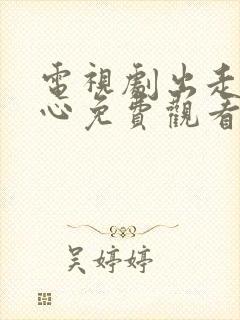 電視劇出走
心免費觀看
吴婷婷